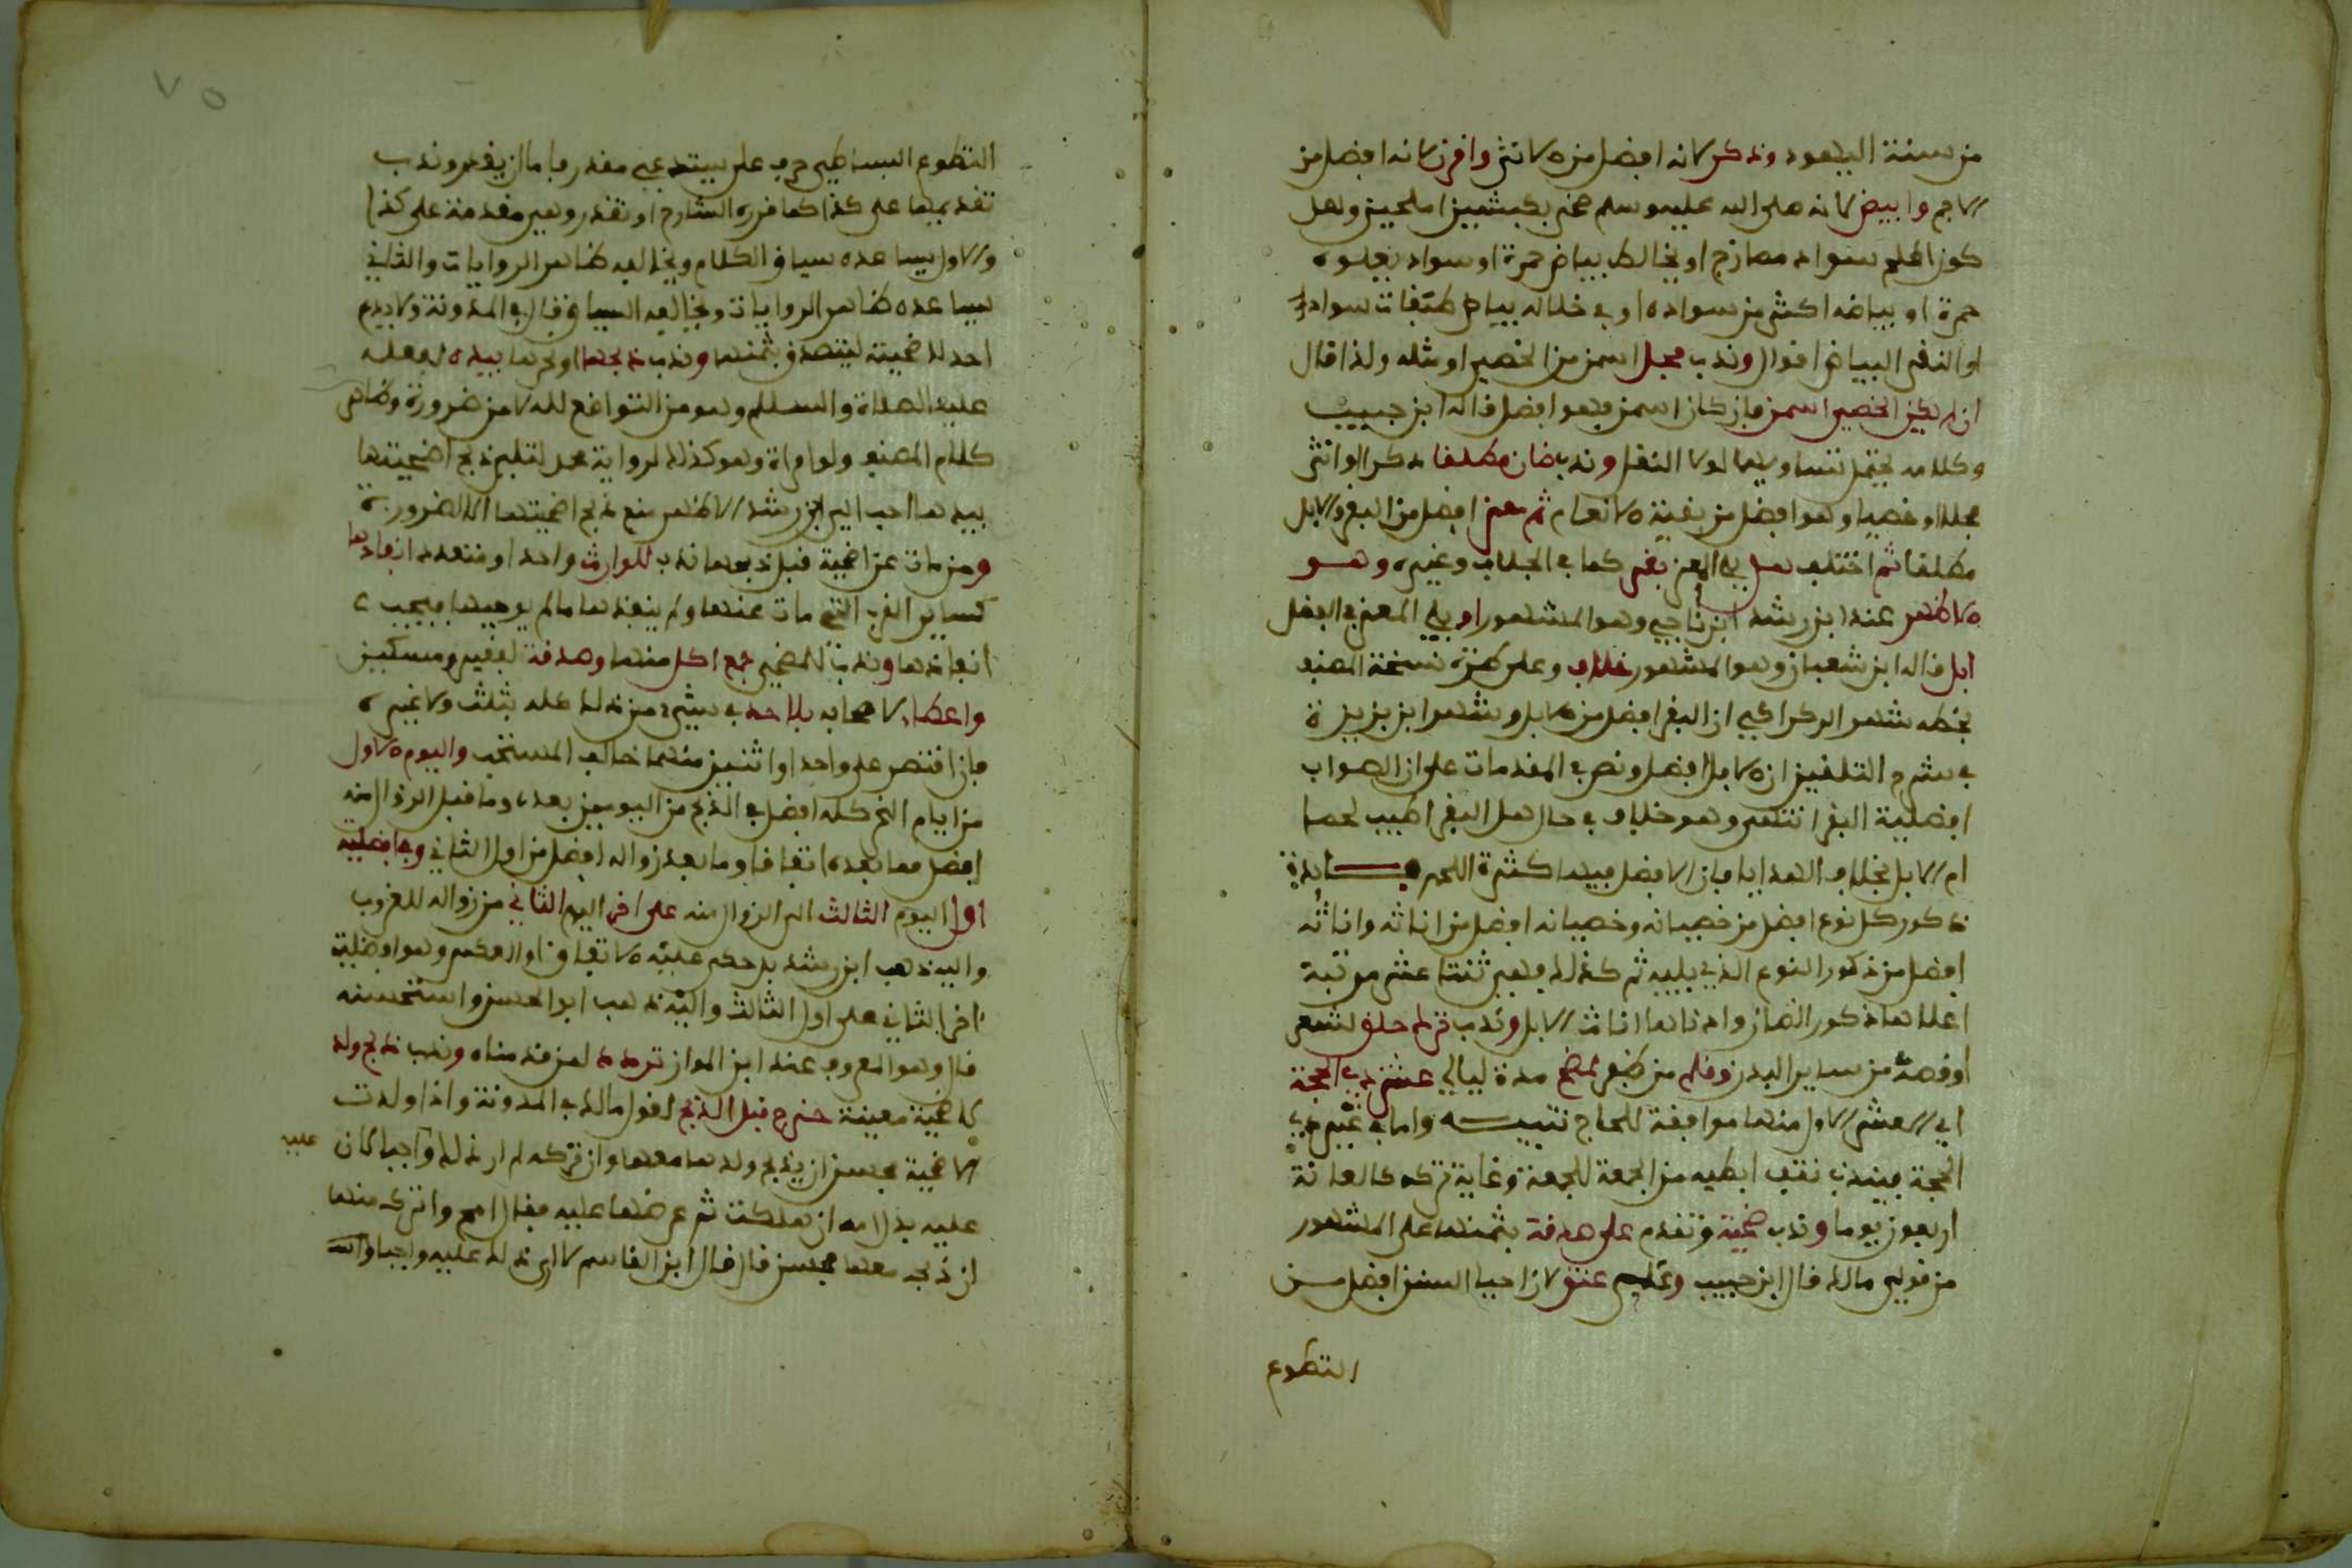 من سنة اليهود وذكر لانه افضل من الانثى واقرن لانه افضل من
الاجم وابيض لانه صلى الله عليه وسلم ضحى بكبشين املحين وهل
كون الملح سواد ممازج او يخالط ببياض حمرة او سواد يعلوه
حمرة او بياضه اكثر من سواده او في خلاله بياض طبقات سواد
او النقي البياض اقوال وندب فحل اسمن من الخصي او مثله ولذا قال
ان لم يكن الخصي اسمن فان كان اسمن فهو افضل قاله ابن حبيب
وكلامه يحتمل تساويهما لولا النقل وندب ضان مطلقا ذكرا او انثى
فحلا او خصيا وهو افضل من بقية الانعام ثم معز افضل من البقر والابل
مطلقا ثم اختلف هل يلي المعز بقر كما في الجلاب وغيره وهو
الاظهر عند ابن رشد ابن ناجي وهو المشهور او يلي المعز في الفضل
ابل قاله ابن شعبان وهو المشهور خلاف وعلى طرة نسخة المصنف
بخطه شهر الركراكي ان البقر افضل من الابل وشهر ابن بزيزة
في شرح التلقين ان الابل افضل ونص في المقدمات على ان الصواب
افضلية البقر انتهى وهو خلاف في حال هل البقر اطيب لحما
ام الابل بخلاف الهدايا فان الافضل فيها كثرة اللحم فائدة
ذكور كل نوع افضل من خصيانه وخصيانه افضل من اناثه واناثه
افضل من ذكور النوع الذي يليه ثم كذلك فهي ثنتا عشر مرتبة
اعلاها ذكور الضان وادناها اناث الابل وندب ترك حلق لشعر
او قصه من ساير البدن وقلم من ظفر لمضح مدة ليالي عشر ذي الحجة
اي العشر الاول منها موافقة للحاج تنبيه واما في غير ذي
الحجة فيندب نتف ابطيه من الجمعة للجمعة وغاية تركه كالعانة
اربعون يوما وندب ضحية وتقدم على صدقة بثمنها على المشهور
من قولي مالك قال ابن حبيب وعلى عتق لان احيا السنن افضل من
التطوع
التطوع البساطي حرف على يستدعي مقدر فاما ان يقدر وندب
تقديمها على كذا كما قرره الشارح او تقدر وهي مقدمة على كذا
والاول يساعده سياق الكلام ويخالفه ظاهر الروايات والثاني
يساعده ظاهر الروايات ويخالفه السياق قال في المدونة ولا يدع
احد الاضحية ليتصدق بثمنها وندب ذبحها او نحرها بيده لفعله
عليه الصلاة والسلام وهو من التواضع لله لا من ضرورة وظاهر
كلام المصنف ولو امراة وهو كذلك لرواية محمد لتلي ذبح اضحيتها
بيدها احب الي ابن رشد الاظهر منع ذبح اضحيتها الا لضرورة
ومن مات عن اضحية قبل ذبحها ندب للوارث واحد او متعدد انفاذها
كساير القرب التي مات عنها ولم ينفذها ما لم يوصيها فيجب
انفاذها وندب للمضحي جمع اكل منها وصدقة لفقير ومسكين
واعطاء لاصحابه بلا حد في شيء من ذلك كله بثلث ولا غيره
فان اقتصر على واحد او اثنين منهما خالف المستحب واليوم الاول
من ايام النحر كله افضل في الذبح من اليومين بعده وما قبل الزوال منه
افضل مما بعده اتفاقا وما بعد زواله افضل من اول الثاني وفي افضلية
اول اليوم الثالث الى الزوال منه على اخر اليوم الثاني من زواله للغروب
واليه ذهب ابن رشد بل حكى عليه الاتفاق او العكس وهو افضلية
اخر الثاني على اول الثالث واليه ذهب ابو الحسن واستحسنه
قال وهو المعروف عند ابن المواز تردد لمن قدمناه وندب ذبح ولد
لاضحية معينة خرج قبل الذبح لقول مالك في المدونة واذا ولدت
الاضحية فحسن ان يذبح ولدها معها وان تركه لم ار ذلك واجبا لان
عليه
عليه بدل امه ان هلكت ثم عرضتها عليه فقال امح واترك منها
ان ذبحه معها فحسن قال قال ابن القاسم لا ارى ذلك عليه واجبا والله
٧٥